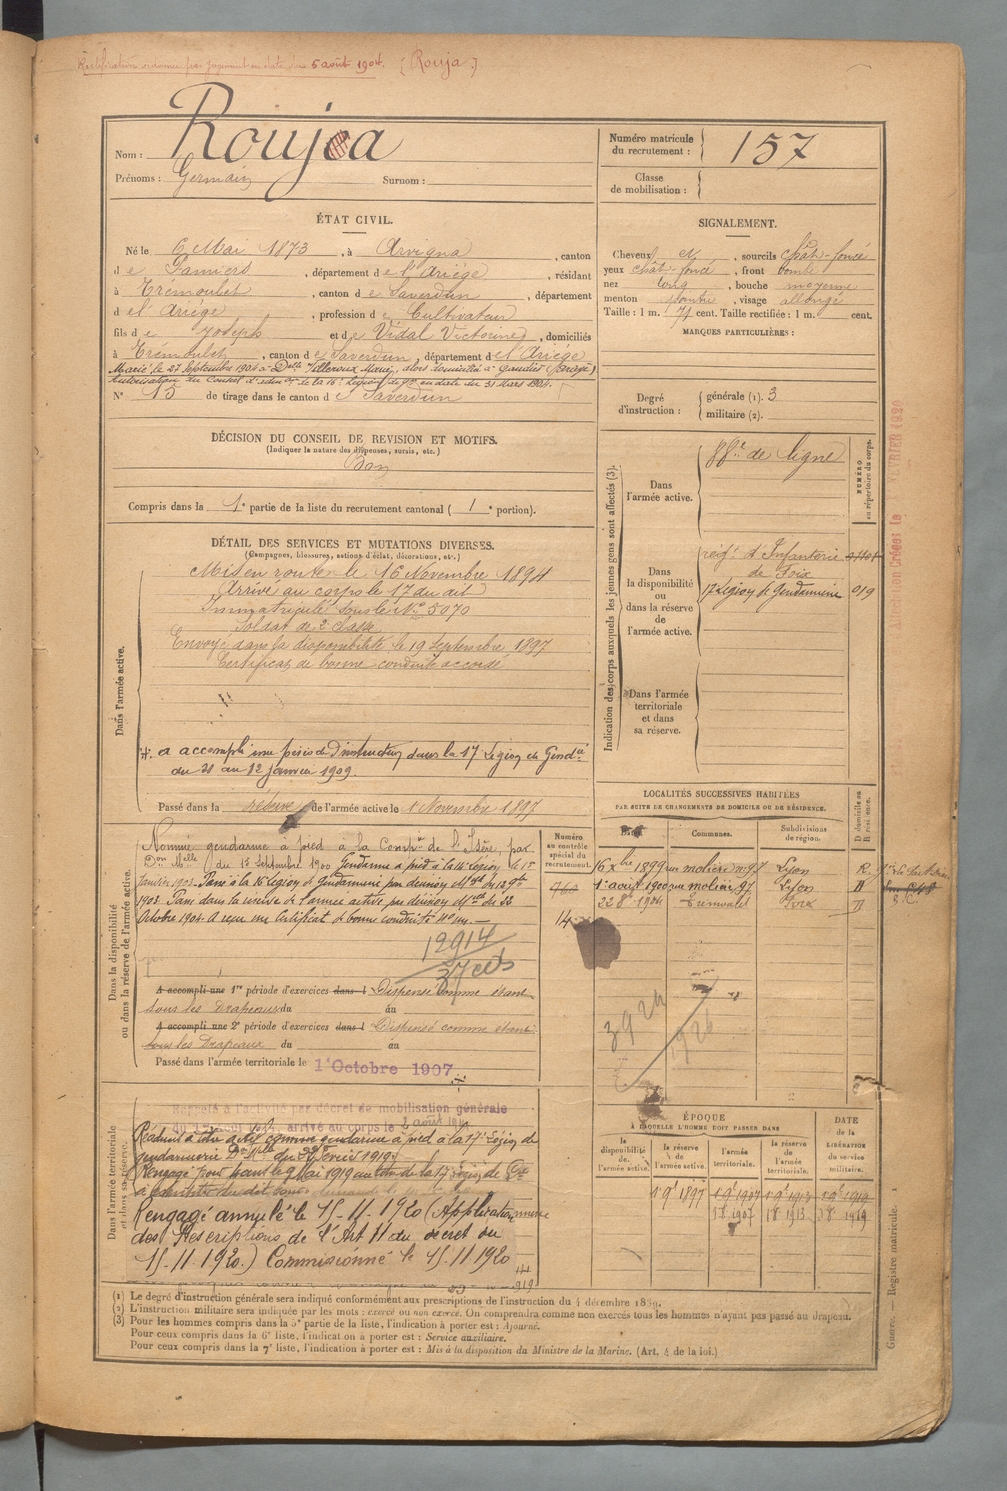 Rectification ordonnée par jugement en date du 5 août 1904. [Rouja.]
Nom : Roujea
Prénoms : Germain Surnom :
Numéro matricule du recrutement : 157
Classe de mobilisation :
ÉTAT CIVIL.
Né le 6 Mai 1873, à Arvigna, canton
de Pamiers, département de l'Ariège, résidant
à Trémoulet, canton de Saverdun, département
de l'Ariège, profession de Cultivateur
fils de Joseph et de Vidal Victorine, domiciliés
à Trémoulet, canton de Saverdun, département de l'Ariège
Marié le 27 Septembre 1904 à Delle Villeroux Marie, alors domiciliée à Gaudiès (Ariège)
Autorisation du Conseil d'adm on de la 16e Légion de Gie en date du 31 Mars 1904.
N° 15 de tirage dans le canton de Saverdun
SIGNALEMENT.
Cheveux et, sourcils chât-foncé
yeux chât-foncé, front bombé
nez long, bouche moyenne
menton pointu, visage allongé
Taille : 1 m. 71 cent. Taille rectifiée : 1 m. cent.
MARQUES PARTICULIÈRES :
Degré d'instruction : générale (1). 3
militaire (2).
DÉCISION DU CONSEIL DE REVISION ET MOTIFS.
(Indiquer la nature des dispenses, sursis, etc.)
Bon
Compris dans la 1e partie de la liste du recrutement cantonal ( 1e portion).
DÉTAIL DES SERVICES ET MUTATIONS DIVERSES.
(Campagnes, blessures, actions d'éclat, décorations, etc.)
Dans l'armée active.
Mis en route le 16 Novembre 1894
Arrivé au corps le 17 du dit
Immatriculé sous le N° 5070
Soldat de 2e classe
Envoyé dans la disponibilité le 19 Septembre 1897
Certificat de bonne conduite accordé
a accompli une période d'instruction dans la 17 Légion de Gend ie
du 28 au 12 janvier 1909.
Passé dans la réserve de l'armée active le 1 Novembre 1897
Indication des corps auxquels les jeunes gens sont affectés (3).
NUMÉRO au répertoire du corps.
Dans l'armée active.
88e de ligne
Dans la disponibilité ou dans la réserve de l'armée active.
rég t d'Infanterie
de Foix
17 Légion de Gendarmerie 019
Dans l'armée territoriale et dans sa réserve.
LOCALITÉS SUCCESSIVES HABITÉES
PAR SUITE DE CHANGEMENTS DE DOMICILE OU DE RÉSIDENCE.
Dates. Communes. Subdivisions de région. D domicile ou R résidence.
16 Xbre 1899 rue molière n° 97 Lyon R
1er août 1900 rue molière 97 Lyon
22 8e 1904 Trémoulet Foix D
Numéro au contrôle spécial du recrutement.
14
Dans la disponibilité ou dans la réserve de l'armée active.
Nommé gendarme à pied à la Comp ie de l'Isère, par
Don Melle du 12 Septembre 1900 Gendarme à pied à la 14 Légion le 1er
Janvier 1903. Passé à la 16 Légion de Gendarmerie par décision
1903. Passé dans la réserve de l'armée active par décision Melle du 22
Octobre 1904. A reçu un Certificat de bonne conduite
12914
37 cets
A accompli une 1re période d'exercices dans l Dispensé comme étant
sous les Drapeaux du au
A accompli une 2e période d'exercices dans l Dispensé comme étant
sous les Drapeaux du au
Passé dans l'armée territoriale le 1er Octobre 1907
3924
1926
Dans l'armée territoriale et dans sa réserve.
Rappelé à l'activité par décret de mobilisation générale
du 1er août 1914, arrivé au corps le
Réadmis à titre actif comme gendarme à pied à la 17 Légion de
gendarmerie Don Melle du 22 Février 1919.
Rengagé pour 1 an le 9 Mai 1919 au titre de la 17 Légion de Gie
Rengagé annulé le 15-11-1920 (Application
des Prescriptions de l'Art 11 du décret du
15-11-1920.) Commissionné le 15.11.1920
ÉPOQUE
À LAQUELLE L'HOMME DOIT PASSER DANS
la disponibilité de l'armée active. la réserve de l'armée active. l'armée territoriale. la réserve de l'armée territoriale.
DATE de la LIBÉRATION du service militaire.
1 9e 1897 1 9e 1907 1 9e 1913 1 9e 1919
1 8 1907 1 8 1913 1 8 1919
(1) Le degré d'instruction générale sera indiqué conformément aux prescriptions de l'instruction du 4 décembre 1889.
(2) L'instruction militaire sera indiquée par les mots : exercé ou non exercé. On comprendra comme non exercés tous les hommes n'ayant pas passé au drapeau.
(3) Pour les hommes compris dans la 5e partie de la liste, l'indication à porter est : Ajourné.
Pour ceux compris dans la 6e liste, l'indication à porter est : Service auxiliaire.
Pour ceux compris dans la 7e liste, l'indication à porter est : Mis à la disposition du Ministre de la Marine. (Art. 4 de la loi.)
Guerre. — Registre matricule. 1